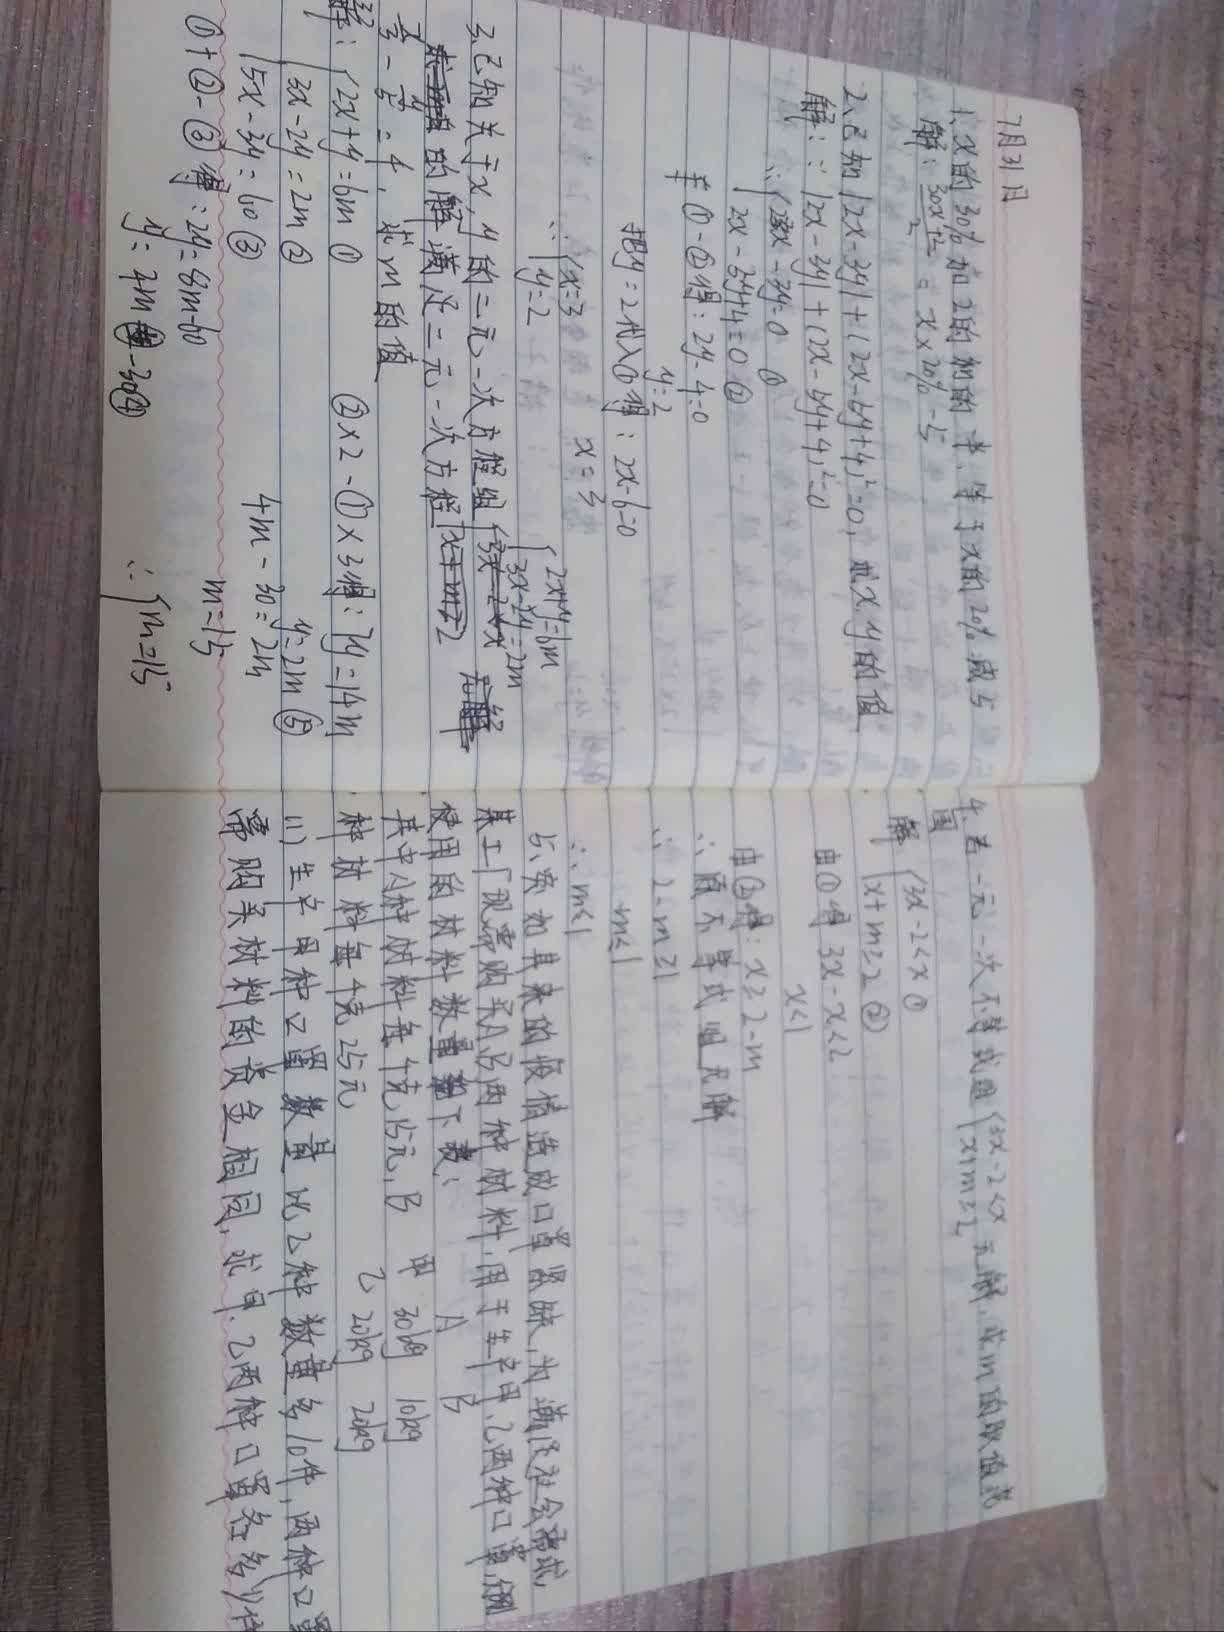 7月31日
1、x的30%加2的和的一半,等于x的20%减5
解: (30x+2)/2 = x×20%-5
2、已知|2x-3y|+(2x-5y+4)²=0,求x y的值
解:∵|2x-3y|+(2x-5y+4)²=0
∴{2x-3y=0 ①
2x-5y+4=0 ②
①-②得:2y-4=0
y=2
把y=2代入①得:2x-6=0
x=3
∴{x=3
y=2
3、已知关于x,y的二元一次方程组{2x+y=6m
3x-2y=2m
的解满足二元一次方程
x/3-y/5=4,求m的值
解:{2x+y=6m ①
3x-2y=2m ②
5x-3y=60 ③
①+②-③得:2y=8m-60
y=4m-30④
②×2-①×3得:7y=14m
y=2m ⑤
4m-30=2m
m=15
∴{m=15
4、若一元一次不等式组{3x-2<x
x+m≥2 无解,求m的取值范
围
解{3x-2<x ①
x+m≥2 ②
由①得 3x-x<2
x<1
由②得:x≥2-m
∴原不等式组无解
∴2-m≥1
m≤1
∴m≤1
5、突如其来的疫情造成口罩紧缺,为满足社会需求,
某工厂现需购买A、B两种材料,用于生产甲、乙两种口罩,
使用的材料数量如下表:
A B
其中A种材料每千克15元,B 甲 30kg 10kg
种材料每千克25元 乙 20kg 20kg
(1)生产甲种口罩数量比乙种数量多10件,两种口罩
需购买材料的资金相同,求甲、乙两种口罩各多少件